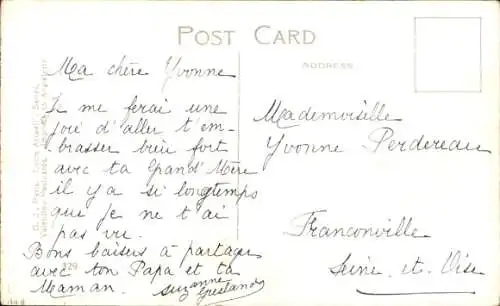 POST CARD
ADDRESS
Ma chère Yvonne
Je me ferai une
joie d'aller t'em-
brasser bien fort
avec ta Grand'Mère
il y a si longtemps
que je ne t'ai
pas vu.
Bons baisers à partager
avec ton Papa et ta
Maman.
Suzanne
Mademoiselle
Yvonne Perdereau
Franconville
Seine et Oise
329